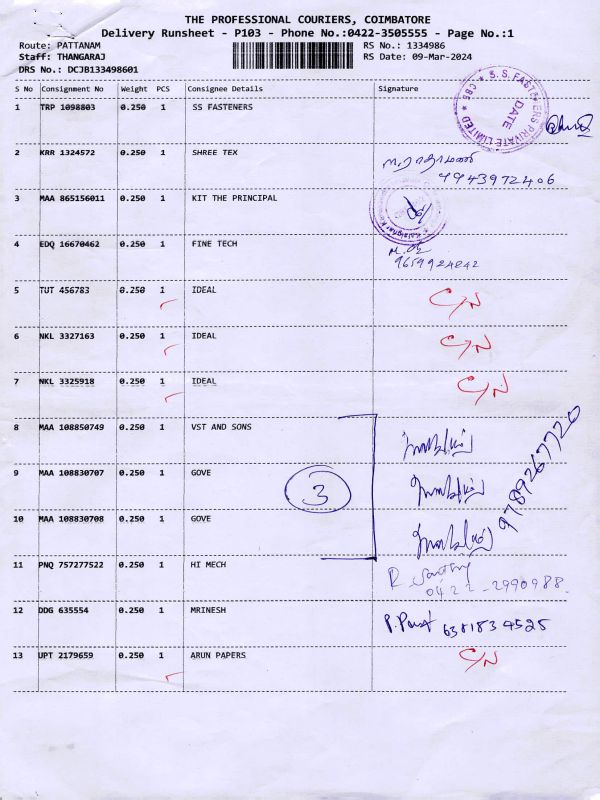 THE PROFESSIONAL COURIERS, COIMBATORE
Delivery Runsheet - P103 - Phone No.:0422-3505555 - Page No.:1
Route: PATTANAM RS No.: 1334986
Staff: THANGARAJ RS Date: 09-Mar-2024
DRS No.: DCJB133498601
S No Consignment No Weight PCS Consignee Details Signature
1 TRP 1098803 0.250 1 SS FASTENERS
S.S. FASTENERS PRIVATE LIMITED ★ CBS ★
DATE
2 KRR 1324572 0.250 1 SHREE TEX
9943972406
3 MAA 865156011 0.250 1 KIT THE PRINCIPAL
4 EDQ 16670462 0.250 1 FINE TECH
9659924842
5 TUT 456783 0.250 1 IDEAL C/N
6 NKL 3327163 0.250 1 IDEAL C/N
7 NKL 3325918 0.250 1 IDEAL C/N
8 MAA 108850749 0.250 1 VST AND SONS
9 MAA 108830707 0.250 1 GOVE
3
9789267720
10 MAA 108830708 0.250 1 GOVE
11 PNQ 757277522 0.250 1 HI MECH
0422-2990988
12 DDG 635554 0.250 1 MRINESH
6381834525
13 UPT 2179659 0.250 1 ARUN PAPERS C/N